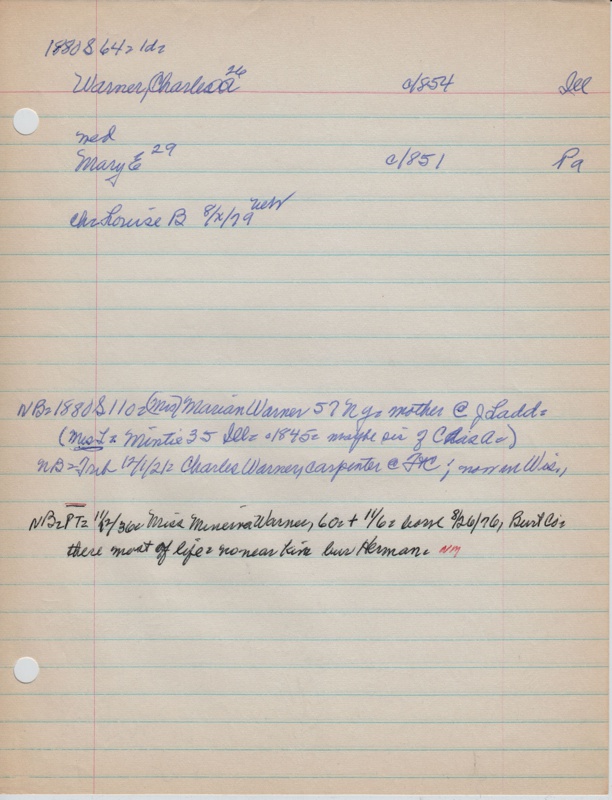 1880 S 64 = 1d =
Warner, Charles A 26 c/854 Ill
med
Mary E 29 c/851 Pa
ch = Louise B 8/x/79 neb
NB = 1880 S 110 = (Mrs) Marian Warner 57 NY = mother @ J Ladd =
(Mrs L = Mintie 35 Ill = 1845 = maybe sis of Chas A =)
NB = Trib 12/1/21 = Charles Warner, carpenter @ ; now in Wis.,
NB = PT = 11/12/36 = Miss Minerva Warner, 60 = + 11/6 = born 8/26/76, Burt Co =
there most of life = no near kin but Herman = NM